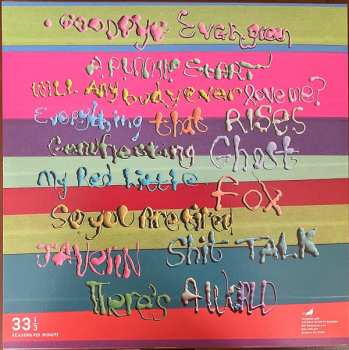 GOODBYE EVERGREEN
A RUNNING START
Will Anybody ever love me?
Everything that RISES
Genuflecting Ghost
My Red Little Fox
So you Are tired
JAVELIN Shit TALK
There's A WORLD
33 1/3
REASONS PER MINUTE